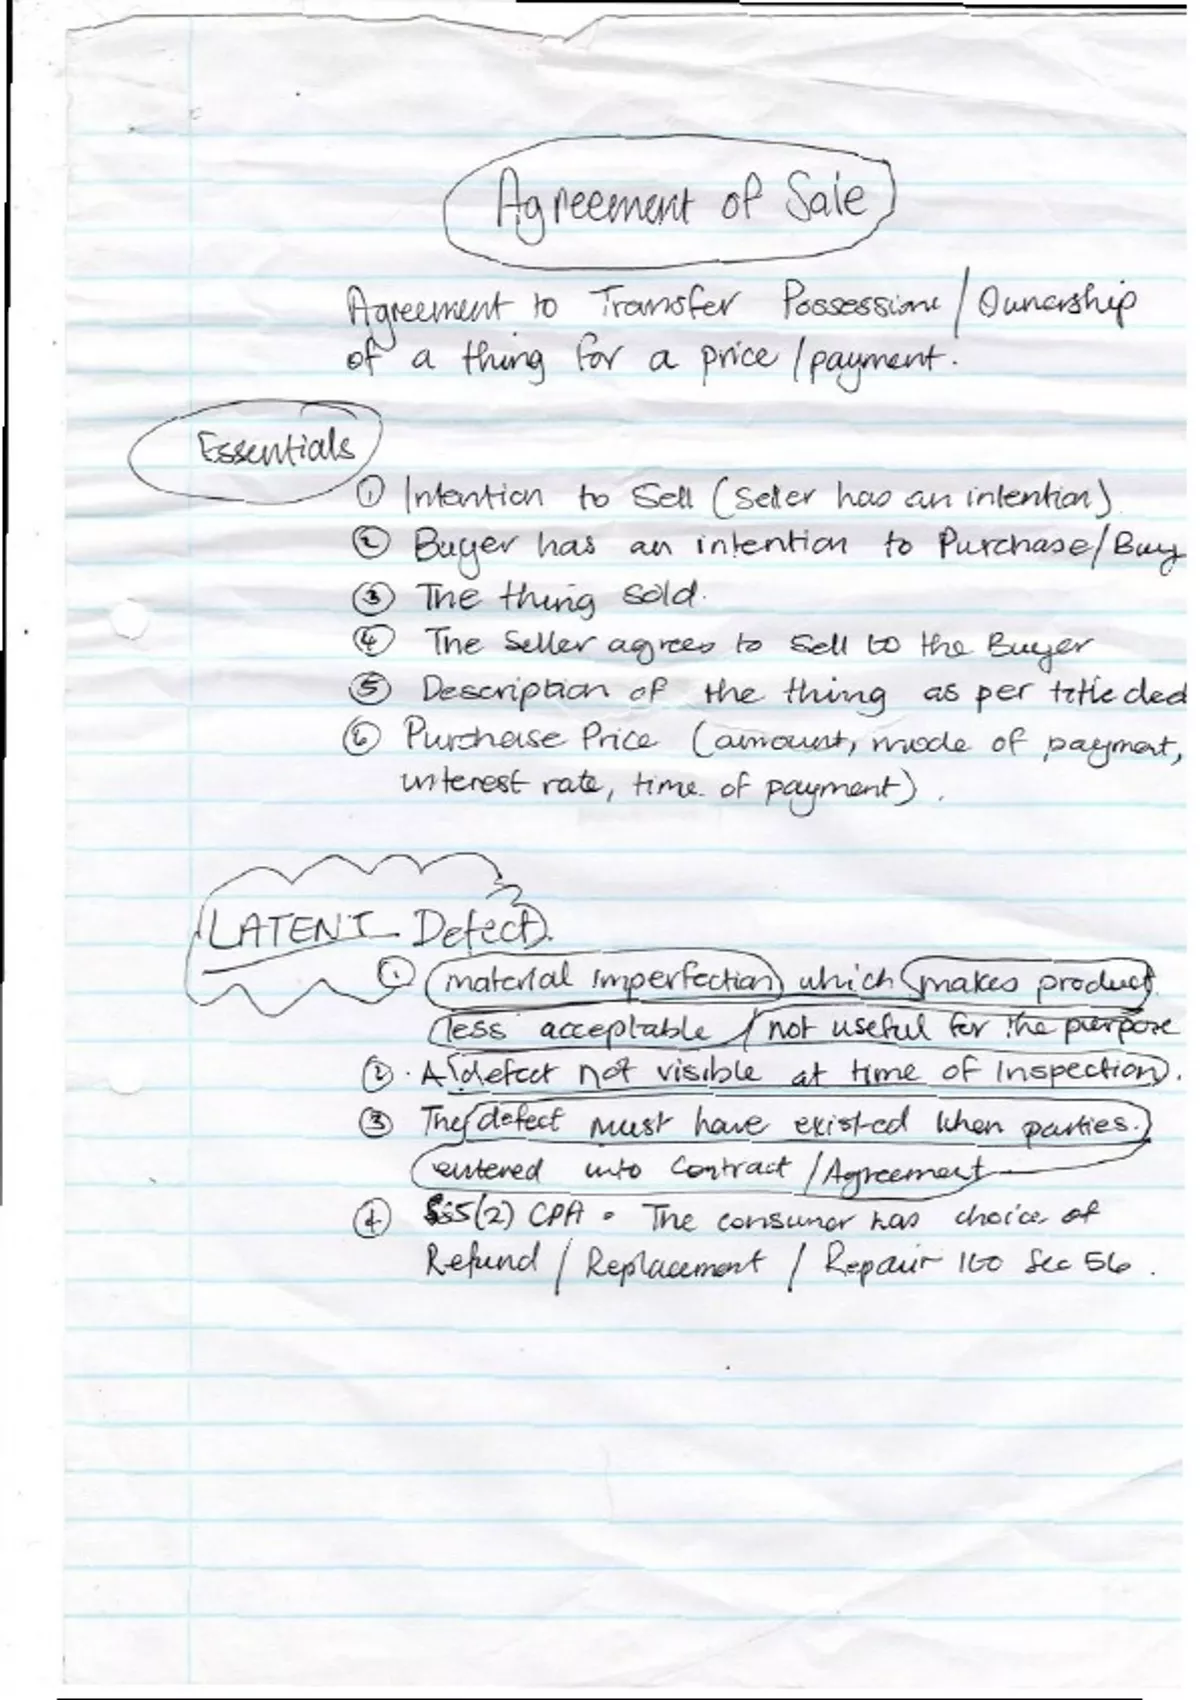 Agreement of Sale
Agreement to Transfer Possession / Ownership
of a thing for a price / payment.
Essentials
① Intention to Sell (Seller has an intention)
② Buyer has an intention to Purchase/Buy
③ The thing sold.
④ The Seller agrees to sell to the Buyer
⑤ Description of the thing as per title deed
⑥ Purchase Price (amount, mode of payment,
interest rate, time of payment).
LATENT Defect.
① material imperfection which makes product
less acceptable / not useful for the purpose
② A defect not visible at time of Inspection.
③ The defect must have existed when parties
entered into Contract / Agreement
④ S55(2) CPA • The consumer has choice of
Refund / Replacement / Repair ito Sec 56.